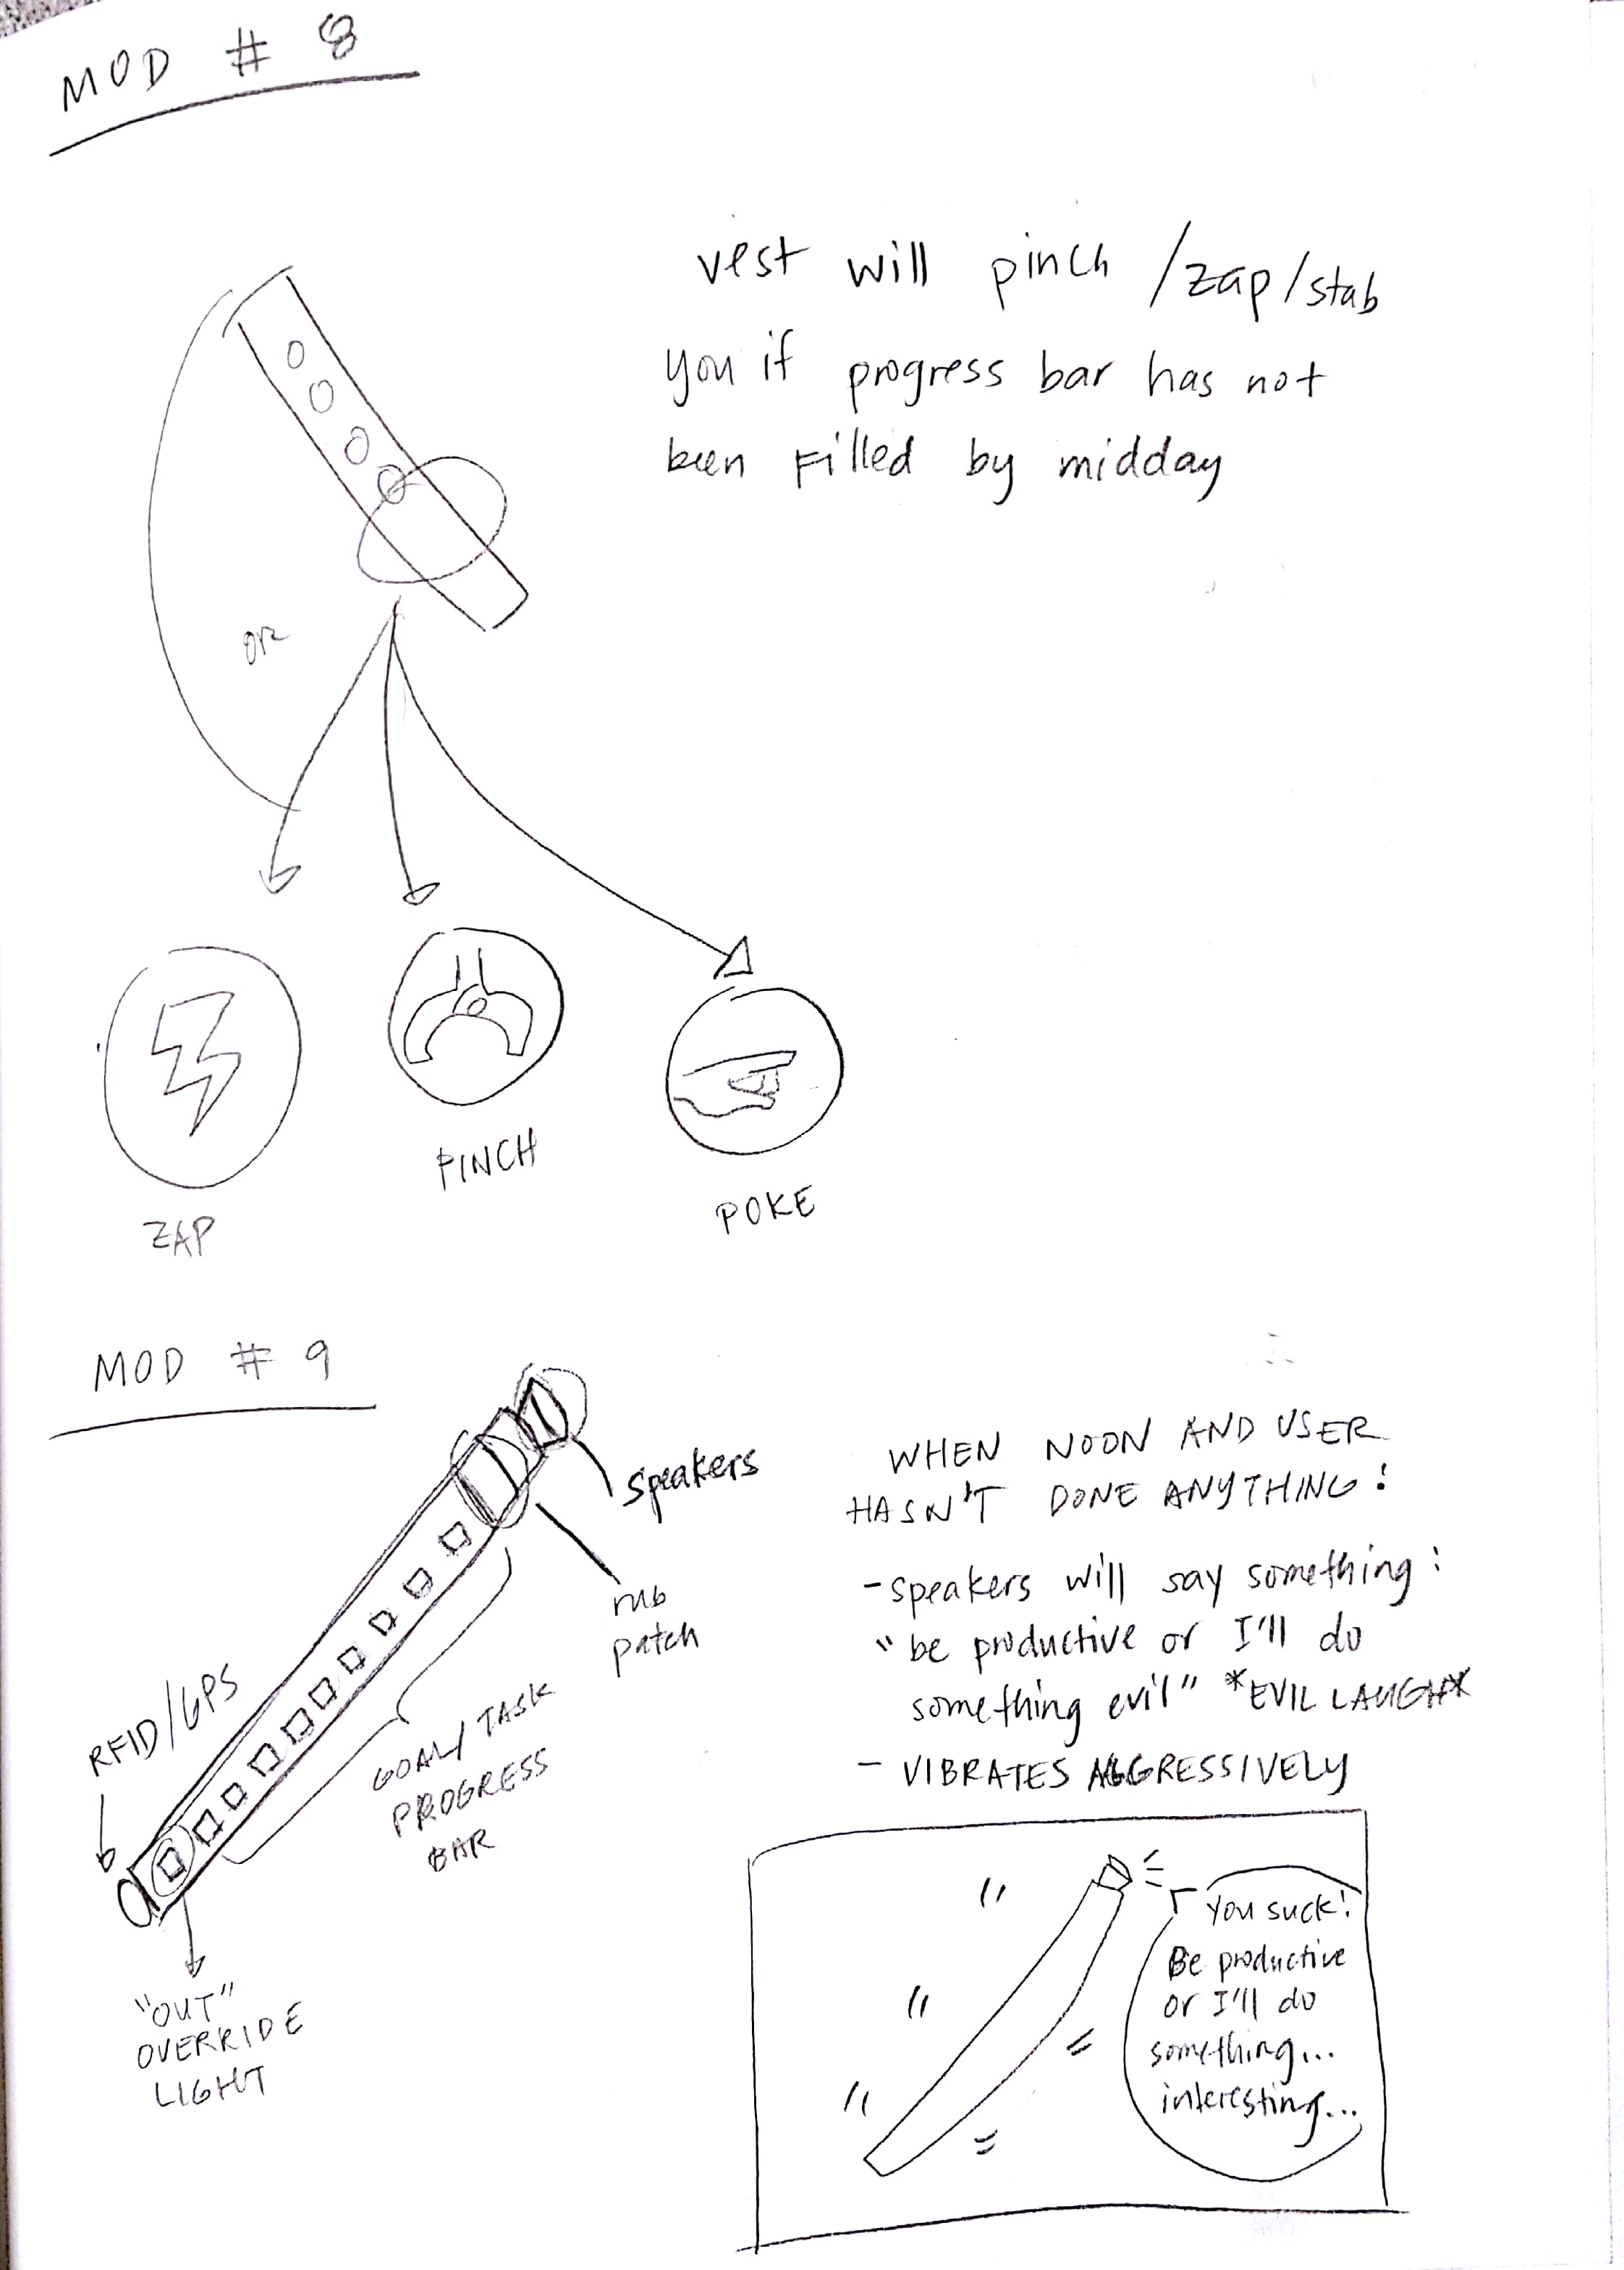 MOD # 8
vest will pinch /zap/stab
you if progress bar has not
been filled by midday
OR
ZAP
PINCH
POKE
MOD # 9
speakers
rub
patch
RFID/GPS
GOAL/TASK
PROGRESS
BAR
"OUT"
OVERRIDE
LIGHT
WHEN NOON AND USER
HASN'T DONE ANYTHING:
- speakers will say something:
"be productive or I'll do
something evil" *EVIL LAUGH*
- VIBRATES AGGRESSIVELY
You suck!
Be productive
or I'll do
something...
interesting...